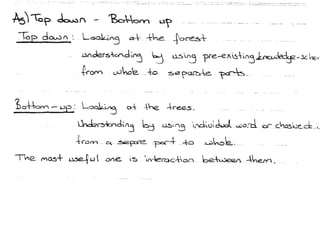 A5) Top down - Bottom up
Top down: Looking at the forest
understanding by using pre-existing knowledge-sche
from whole to separate parts.
Bottom-up: Looking at the trees.
Understanding by using individual word or
from a separe part to whole.
The most useful one is interaction between them.